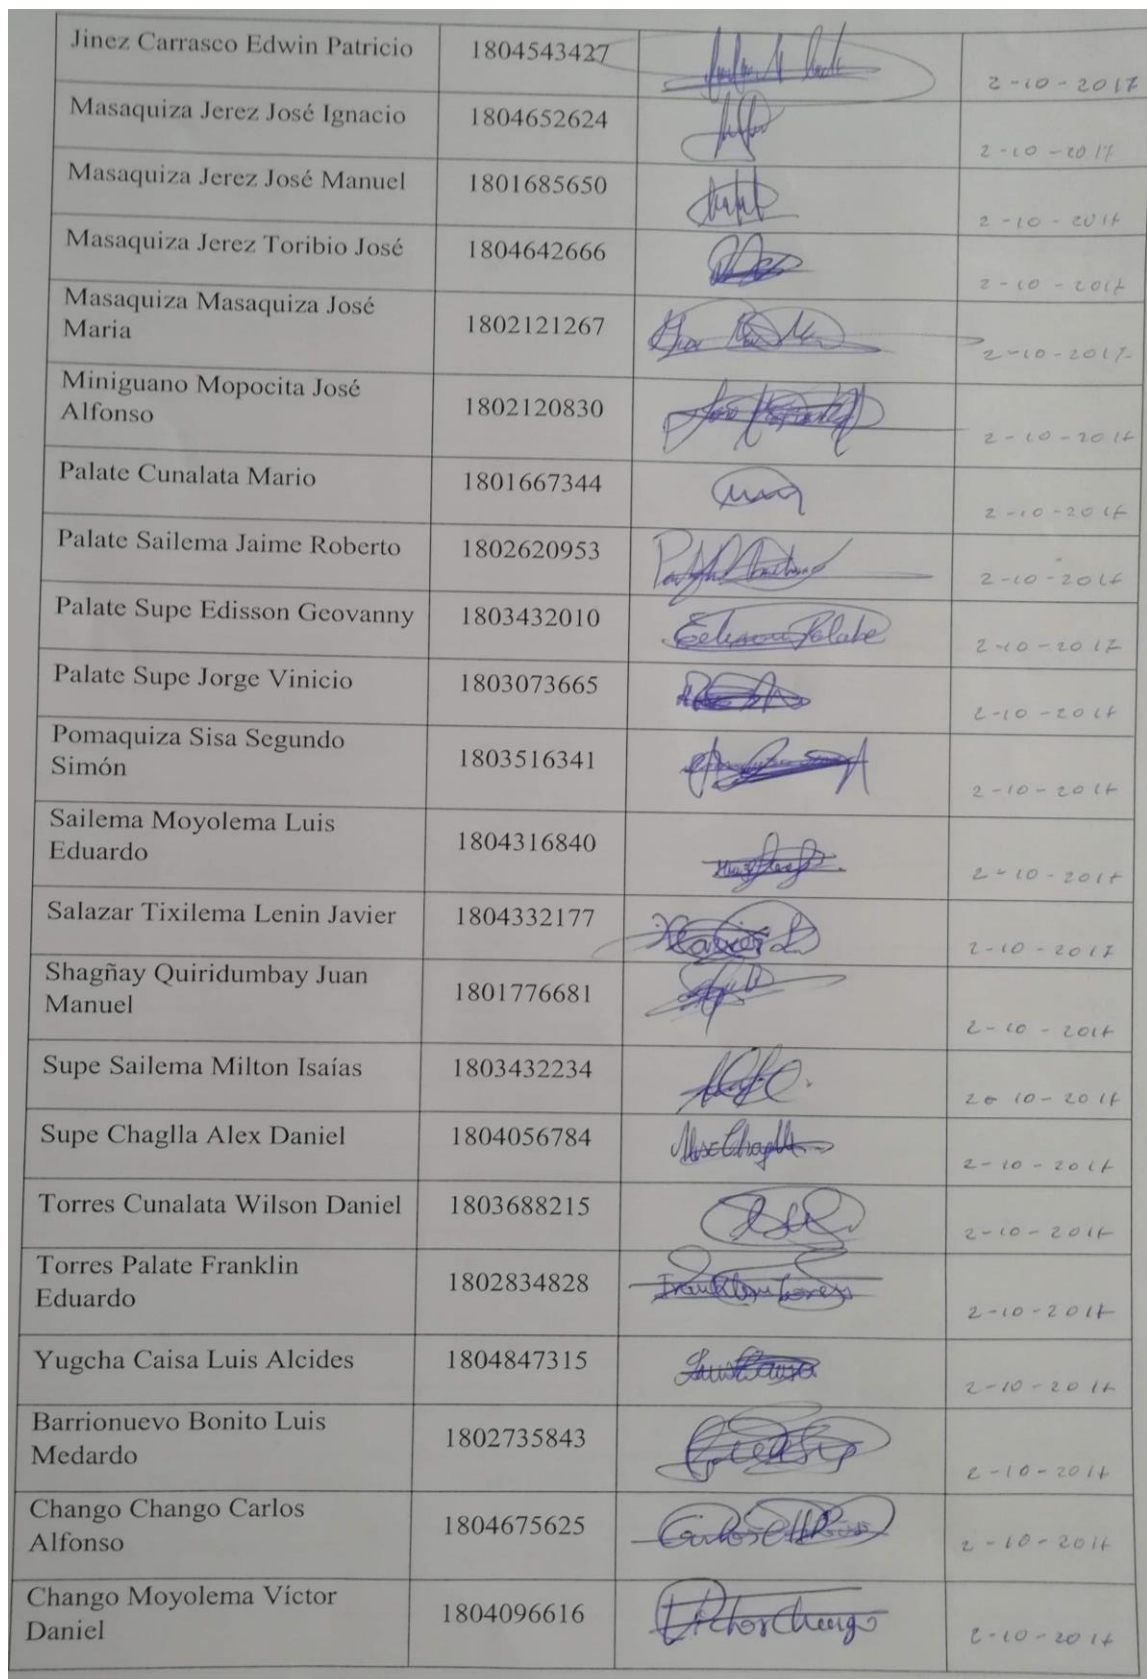 Jinez Carrasco Edwin Patricio 1804543427 2-10-2017
Masaquiza Jerez José Ignacio 1804652624 2-10-2017
Masaquiza Jerez José Manuel 1801685650 2-10-2017
Masaquiza Jerez Toribio José 1804642666 2-10-2017
Masaquiza Masaquiza José
Maria 1802121267 2-10-2017
Miniguano Mopocita José
Alfonso 1802120830 2-10-2017
Palate Cunalata Mario 1801667344 2-10-2017
Palate Sailema Jaime Roberto 1802620953 2-10-2017
Palate Supe Edisson Geovanny 1803432010 Edisson Palate 2-10-2017
Palate Supe Jorge Vinicio 1803073665 2-10-2017
Pomaquiza Sisa Segundo
Simón 1803516341 2-10-2017
Sailema Moyolema Luis
Eduardo 1804316840 2-10-2017
Salazar Tixilema Lenin Javier 1804332177 2-10-2017
Shagñay Quiridumbay Juan
Manuel 1801776681 2-10-2017
Supe Sailema Milton Isaías 1803432234 2-10-2017
Supe Chaglla Alex Daniel 1804056784 Alex Chaglla 2-10-2017
Torres Cunalata Wilson Daniel 1803688215 2-10-2017
Torres Palate Franklin
Eduardo 1802834828 Franklin Torres 2-10-2017
Yugcha Caisa Luis Alcides 1804847315 Luis Caisa 2-10-2017
Barrionuevo Bonito Luis
Medardo 1802735843 2-10-2017
Chango Chango Carlos
Alfonso 1804675625 Carlos 2-10-2017
Chango Moyolema Víctor
Daniel 1804096616 Victor Chango 2-10-2017